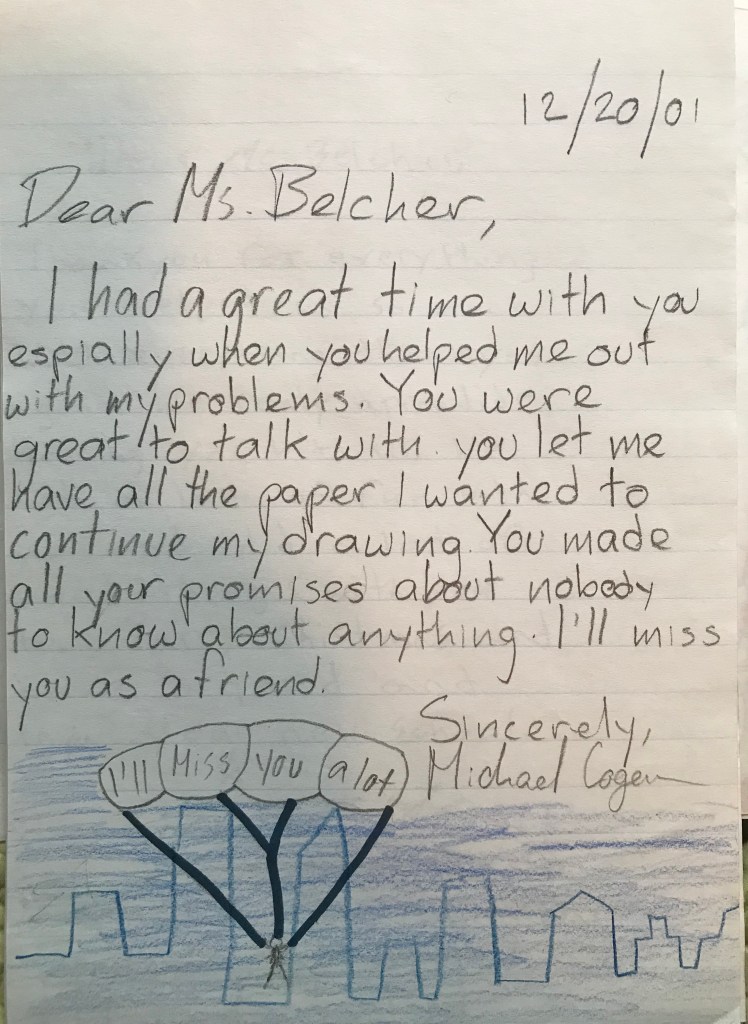 12/20/01
Dear Ms. Belcher,
I had a great time with you
espially when you helped me out
with my problems. You were
great to talk with. you let me
have all the paper I wanted to
continue my drawing. You made
all your promises about nobody
to know about anything. I'll miss
you as a friend.
Sincerely,
Michael Cogen
I'll Miss you a lot